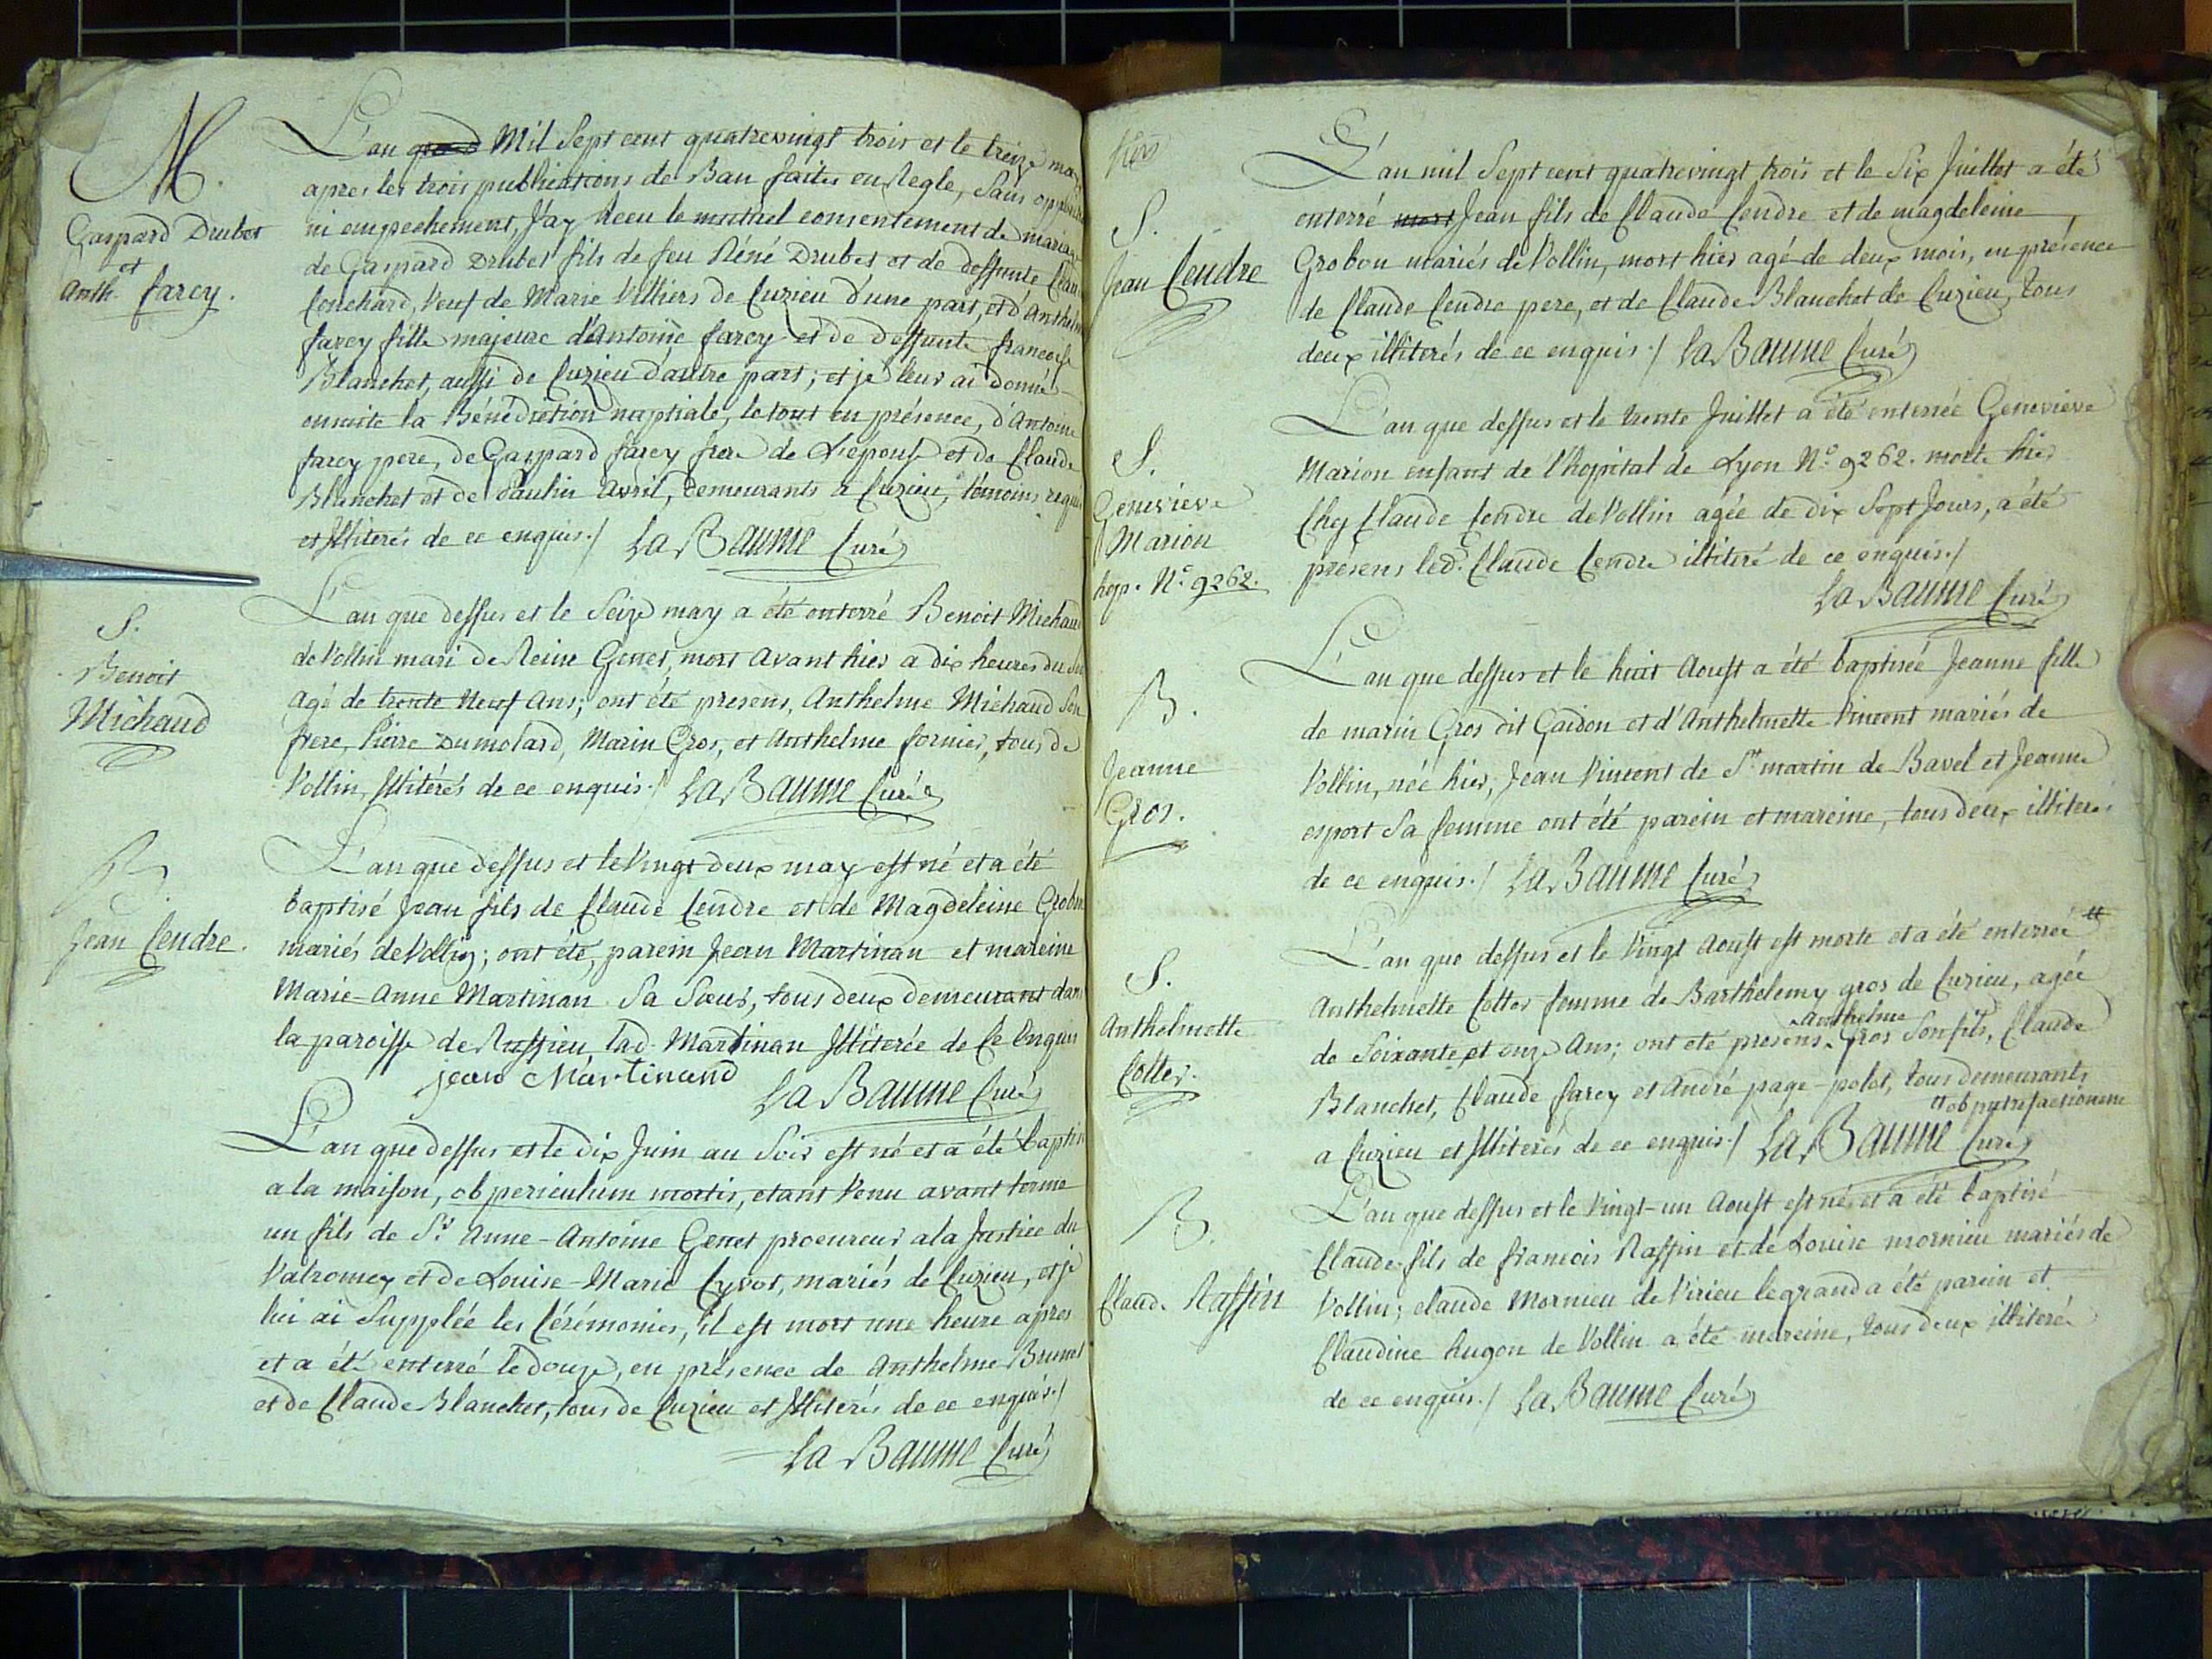 M.
Gaspard Drubet
et
Anth. farcy.
L'an Mil Sept cent quatrevingt trois et le treize may
apres les trois publications de Ban faites en Regle, Sans
ni empechement, J'ay Receu le mutuel consentement de mariage
de Gaspard Drubet fils de feu Réné Drubet et de deffunte
Conchard, Veuf de Marie Villiers de Cuzieu d'une part, et d'Anthelm
farcy fille majeure d'Antoine farcy et de deffunte francoise
Blanchet, aussi de Cuzieu d'autre part; et je leur ai donné
ensuite la Bénédiction nuptiale, le tout en présence, d'Antoine
farcy pere, de Gaspard farcy frere de L'épouse et de Claude
Blanchet et de Paulin Avril, demeurants a Cuzieu, témoins requis
et Illiterés de ce enquis./ La Baume Curé
S.
Benoit
Michaud
L'an que dessus et le Seize may a été enterré Benoit Michaud
de Vollin mari de Reine Genet, mort avant hier a dix heures du
Agé de trente Neuf Ans; ont été presens, Anthelme Michaud Son
frere, Pierre Dumolard, Marin Gros, et Anthelme fornier, tous de
Vollin, Illitérés de ce enquis./ La Baume Curé
B.
Jean Cendre.
L'an que dessus et le Vingt deux may est né et a été
baptisé Jean fils de Claude Cendre et de Magdeleine Grobon
mariés de Vollin; ont été, parein Jean Martinan et mareine
Marie-Anne Martinan Sa Soeur, tous deux demeurant dans
la paroisse de Ruffieu lad. Martinan Illiterée de Ce Enquis
Jean Martinand
La Baume Curé
L'an que dessus et le dix Juin au Soir est né et a été baptisé
a la maison, ob periculum mortis, etant Venu avant terme
un fils de Sr Anne-Antoine Genet procureur a la Justice du
Valromey et de Louise-Marie Cyvot, mariés de Cuzieu, et je
lui ai Supplée les Cérémonies, il est mort une heure apres
et a été enterré le douze, en présence de Anthelme Brunet
et de Claude Blanchet, tous de Cuzieu et Illiterés de ce enquis./
La Baume Curé
S.
Jean Cendre
L'an mil Sept cent quatrevingt trois et le Six Juillet a été
enterré Jean fils de Claude Cendre et de magdeleine
Grobon mariés de Vollin, mort hier agé de deux mois, en présence
de Claude Cendre pere, et de Claude Blanchet de Cuzieu, tous
deux illiterés de ce enquis./ La Baume Curé
S.
Genevieve
Marion
hop. N.o 9262.
L'an que dessus et le trente Juillet a été enterrée Genevieve
Marion enfant de l'hopital de Lyon N.o 9262. morte hier
Chez Claude Cendre de Vollin agée de dix Sept Jours, a été
présens led. Claude Cendre illiteré de ce enquis./
La Baume Curé
B.
Jeanne
Gros.
L'an que dessus et le huit Aoust a été baptisée Jeanne fille
de marin Gros dit Gaidon et d'Anthelmette Vincent mariés de
Vollin, née hier, Jean Vincent de St martin de Bavel et Jeanne
esport Sa femme ont été parein et mareine, tous deux illiterés
de ce enquis./ La Baume Curé
S.
Anthelmette
Cotter.
L'an que dessus et le Vingt Aoust est morte et a été enterrée tt
Anthelmette Cotter femme de Barthelemy gros de Cuzieu, agée
de Soixante et onze Ans; ont été presens Anthelme Gros Son fils, Claude
Blanchet, Claude farcy et André page-polet, tous demeurants
tt ob putrefactionem
a Cuzieu et Illiterés de ce enquis./ La Baume Curé
B.
Claude Raffin
L'an que dessus et le Vingt-un Aoust est né, et a été baptisé
Claude fils de francois Raffin et de Louise mornieu mariés de
Vollin; claude Mornieu de Virieu le grand a été parein et
Claudine hugon de Vollin a été mareine, tous deux illiterés
de ce enquis./ La Baume Curé